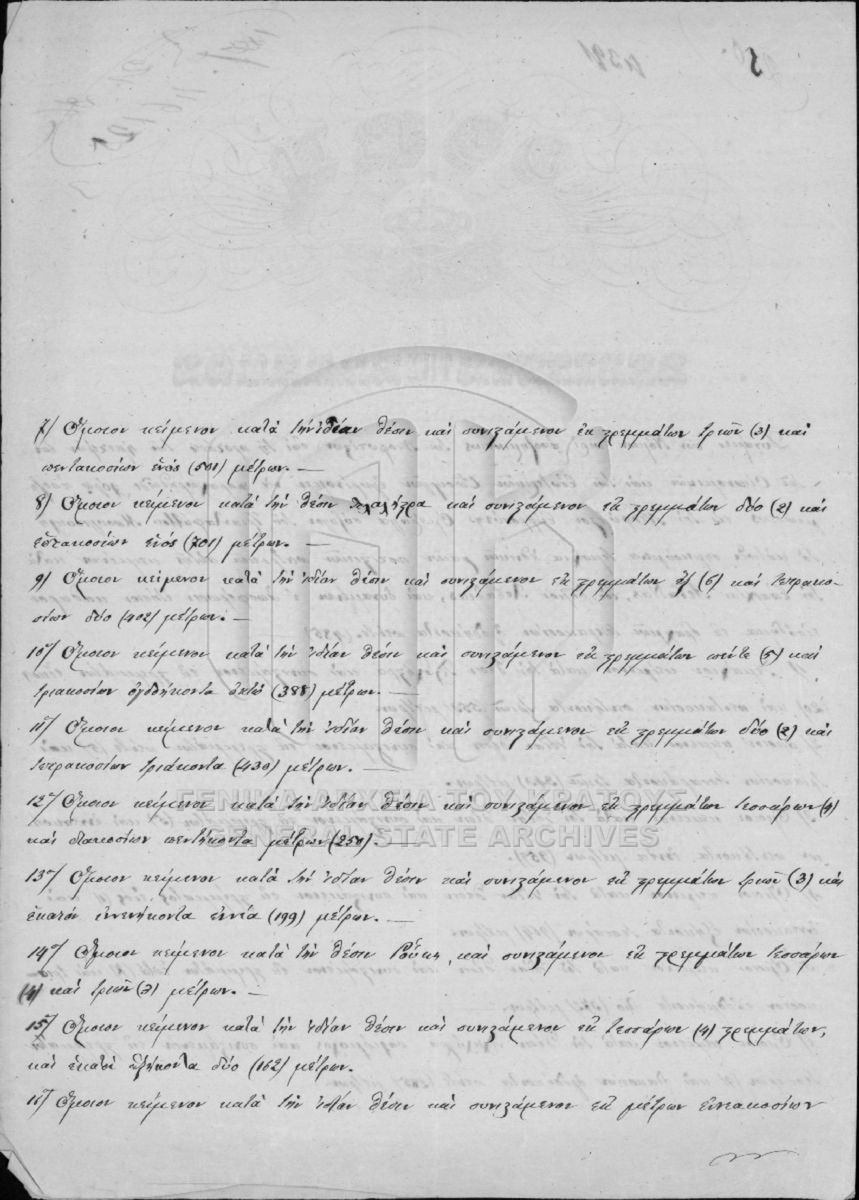 7) Ὅμοιον κείμενον κατὰ τὴν ἰδίαν θέσιν καὶ συνιζάμενον ἐκ στρεμμάτων τριῶν (3) καὶ
πεντακοσίων ἑνός (501) μέτρων. —
8) Ὅμοιον κείμενον κατὰ τὴν θέσιν καὶ συνιζάμενον ἐκ στρεμμάτων δύο (2) καὶ
ἑπτακοσίων ἑνός (701) μέτρων. —
9) Ὅμοιον κείμενον κατὰ τὴν ἰδίαν θέσιν καὶ συνιζάμενον ἐκ στρεμμάτων ἓξ (6) καὶ τετρακο-
σίων δύο (402) μέτρων. —
10) Ὅμοιον κείμενον κατὰ τὴν ἰδίαν θέσιν καὶ συνιζάμενον ἐκ στρεμμάτων πέντε (5) καὶ
τριακοσίων ὀγδοήκοντα ὀκτὼ (388) μέτρων. —
11) Ὅμοιον κείμενον κατὰ τὴν ἰδίαν θέσιν καὶ συνιζάμενον ἐκ στρεμμάτων δύο (2) καὶ
τετρακοσίων τριάκοντα (430) μέτρων. —
ΓΕΝΙΚΑ ΑΡΧΕΙΑ ΤΟΥ ΚΡΑΤΟΥΣ
12) Ὅμοιον κείμενον κατὰ τὴν ἰδίαν θέσιν καὶ συνιζάμενον ἐκ στρεμμάτων τεσσάρων (4)
GENERAL STATE ARCHIVES
καὶ διακοσίων πεντήκοντα μέτρων (250). —
13) Ὅμοιον κείμενον κατὰ τὴν ἰδίαν θέσιν καὶ συνιζάμενον ἐκ στρεμμάτων τριῶν (3) καὶ
ἑκατὸν ἐνενήκοντα ἐννέα (199) μέτρων. —
14) Ὅμοιον κείμενον κατὰ τὴν θέσιν καὶ συνιζάμενον ἐκ στρεμμάτων τεσσάρων
(4) καὶ τριῶν (3) μέτρων. —
15) Ὅμοιον κείμενον κατὰ τὴν ἰδίαν θέσιν καὶ συνιζάμενον ἐκ τεσσάρων (4) στρεμμάτων,
καὶ ἑκατὸν ἑξήκοντα δύο (162) μέτρων.
16) Ὅμοιον κείμενον κατὰ τὴν ἰδίαν θέσιν καὶ συνιζάμενον ἐκ μέτρων ἐννεακοσίων